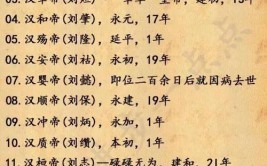 04. 汉和帝(刘肇)，永元，17年
05. 汉殇帝(刘隆)，延平，1年
06. 汉安帝(刘祜)，永初，19年
07. 汉婴帝(刘懿)，即位二百余日后就因病去世
08. 汉顺帝(刘保)，永建，19年
09. 汉冲帝(刘炳)，永嘉，1年
10. 汉质帝(刘缵)，本初，1年
11. 汉桓帝(刘志)—碌碌无为，建和，21年